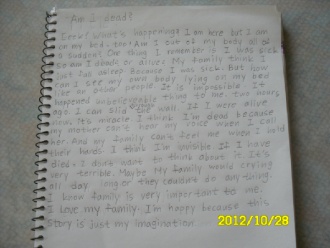 Am I dead?
Eerk! what's happening? I am here but I am
on my bed, too! Am I out of my body all of
a sudden? One thing I remember is I was sick
am I dead? or alive? My family think I
just fall asleep because I was sick. But how
can I see my own body lying on my bed
like an other people It is impossible. It
happened unbelieverable thing to me two hours
ago. I can slid through the wall. If I were alive
now, It's miracle. I think I'm dead because
my mother can't hear my voice when I call
her. And my family can't feel me when I hold
their hands. I think I'm invisible If I have
died. I don't want to think about it. It's
very terrible. Maybe My family would crying
all day long or they couldn't do any thing.
I know family is very important to me.
I love my family. I'm happy because this
story is just my imagination
2012/10/28